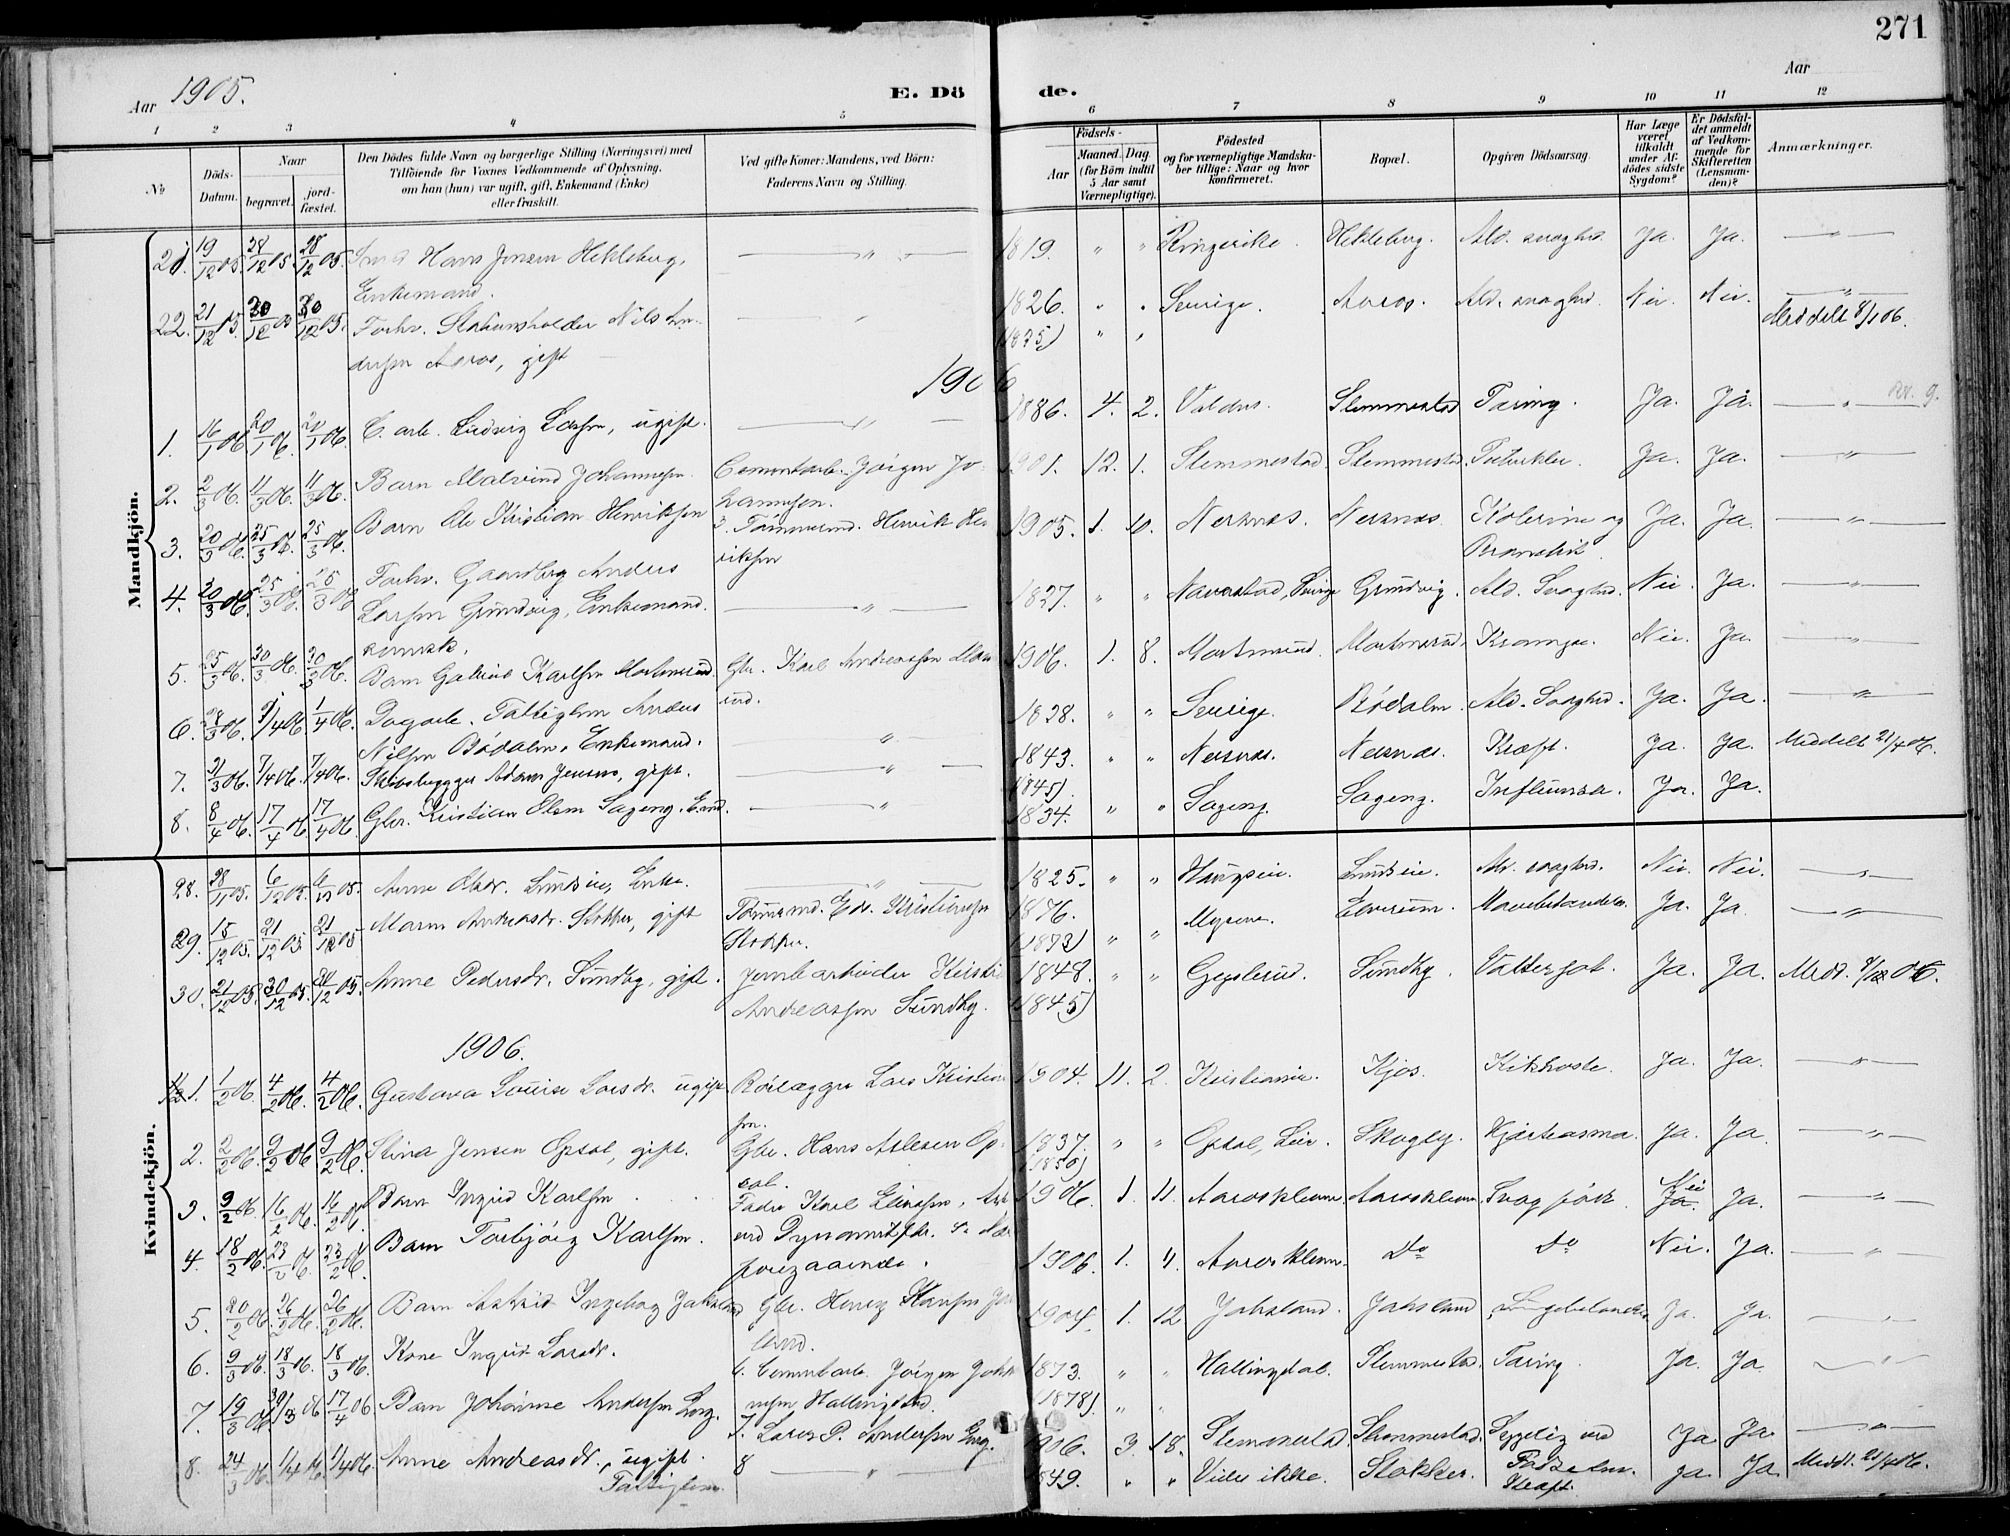 271
Aar 1905.
E. Dö
de.
Aar
1 2 3 4 5 6 7 8 9 10 11 12
No
Döds-
Datum.
Naar
begravet.
jord-
fæstet.
Den Dödes fulde Navn og borgerlige Stilling (Næringsvei) med
Tilföiende for Voxnes Vedkommende af Oplysning,
om han (hun) var ugift, gift, Enkemand (Enke)
eller fraskilt.
Ved gifte Koner: Mandens, ved Börn:
Faderens Navn og Stilling.
Födsels-
Aar
Maaned. Dag
(for Börn indtil
5 Aar samt
Værnepligtige).
Födested
og for værnepligtige Mandska-
ber tillige: Naar og hvor
konfirmeret.
Bopæl.
Opgiven Dödsaarsag.
Har Læge
været
tilkaldt
under Af-
dödes sidste
Sygdom?
Er Dödsfal-
det anmeldt
af Vedkom-
mende for
Skifteretten
(Lensman-
den)?
Anmærkninger.
Mandkjön.
21. 19/12 05. 28/12 05. 28/12 05. Hans Jensen Hekleberg, 1819. " " Ringerike. Hekleberg. Ald. svaghd. Ja. Ja. "
Enkemand.
22. 21/12 05. 30/12 05 30/12 05. Forhv. Stationsholder Nils An- 1826. " " Sverige. Aaros. Ald. svaghd. Nei. Nei. "
dersen Aaros, gift (1835) " " Meddelt 8/1 06.
1906
1. 16/1 06. 20/1 06. 20/1 06. C. arb. Ludvig Larsen, ugift. " 1886. 4. 2. Valders. Slemmestad Tæring. Ja. Ja. "
2. 2/3 06. 11/3 06. 11/3 06. Barn Malvind Johannesen. Cementarb. Jörgen Jo- 1901. 12. 1. Slemmestad. Slemmestad. Ja. Ja. "
hannesen.
3. 20/3 06. 25/3 06. 25/3 06. Barn Ole Kristian Henriksen 3. Tömmermd. Henrik Hen- 1905. 1. 10. Nersnæs. Nersnæs. Kolerine og Ja. Ja. "
riksen
4. 20/3 06. 25/3 06. 25/3 06. Forhv. Gaardbrg Anders
Larsen Grundvig, Enkemand. " 1827. " " Naverstad, Sverige Grundvig. Ald. Svaghd. Nei. Ja. "
5. 25/3 06. 30/3 06. 30/3 06. Barn Karlsen Mortensrud. Gbr. Karl Andreassen 1906. 1. 8. Mortensrud. Mortensrud. Krampe. Nei. Ja. "
rud.
6. 28/3 06. 1/4 06 1/4 06. Dagarb. Fattiglem Anders 1828. " " Sverige. Bödalen. Ald. Svaghd. Ja. Ja. "
Nilsen Bödalen. Enkemand. "
7. 31/3 06. 7/4 06. 7/4 06. Skibsbygger Adam Jensen, gift. " 1843. " " Nersnæs. Nersnæs. Kræft. Ja. Ja. Meddelt 21/4 06.
(1845)
8. 8/4 06. 17/4 06 17/4 06. Gbr. Kristian Olsen Sageng. Emd. " 1834. " " Sageng. Sageng. Influensa. Ja. Ja.
Kvindekjön.
28. 28/11 05. 6/12 05. 6/12 05. Anne Olsdr. Lundsein, Enke. " 1825. " " Lundsein. Ald. svaghd. Nei. Nei. "
29. 15/12 05 21/12 05 21/12 05 Maren Andreasdr. Stokker, gift Tömmermd. Edv. Kristiansen 1876. Mysen. Elverum. Ja. Ja. "
Stokker. (1873) " "
30. 21/12 05. 30/12 05. 30/12 05. Anne Pedersdr. Sundby, gift. Jernbarbeider Kristi 1848. " " Sundby. Vattersot. Ja. Ja. Medd.
Andreassen Sundby. (1845)
1906.
1. 1/2 06. 4/2 06. 4/2 06. Gustava Louise Larsdr. ugift Rörlægger Lars Kristian 1904. 11. 2. Kristiania. Kjos. Kikhoste. Ja. Ja. "
sen.
2. 2/2 06. 9/2 06 9/2 06. Stina Jensen Opsal, gift. Gbr. Hans Aslesen Op- 1837. " " Opsal, Lier. Skogby. Hjerteasma. Ja. Ja. "
sal. (1850)
3. 9/2 06. 16/2 06. 16/2 06. Barn Ingrid Karlsen. Fader Karl Einarsen, Arb. 1906 1. 11. Aarosklem. Aarosklem. Svag födt. Nei Ja. Ja. "
4. 18/2 06. 23/2 06. 23/2 06. Barn Torbjörg Karlsen. ved Dynamitfbr. Se
foregaaende. 1906. 1. 11. Aarosklem. do do Nei. Ja. "
5. 20/2 06. 26/2 06. 26/2 06. Barn Astrid Ingeborg Jahslund Gbr. Henrik Hansen Jah 1904. 1. 12 Jahslund. Jahslund Ja. Ja. "
lund.
6. 9/3 06. 18/3 06. 18/3 06. Kone Ingrid Larsdr. 6. Cementarb. Jörgen Johan 1873. " " Hallingdal. Slemmestad. Tæring. Ja. Ja "
nesen Hallingdal. (1878). " "
7. 19/3 06. 30/3 06 17/4 06 Barn Johanne Andersen 7. Lars P. Andersen 1906. 3 18. Slemmestad. Slemmestad. Sygelig ved Ja. Ja. "
Födselen.
8. 24/3 06. 1/4 06. 1/4 06. Anne Andreasdr., ugift. 8 " 1849. " " Vides ikke. Stokker. Kræft. Ja. Ja. Medd. 21/4 06.
Fattiglem.